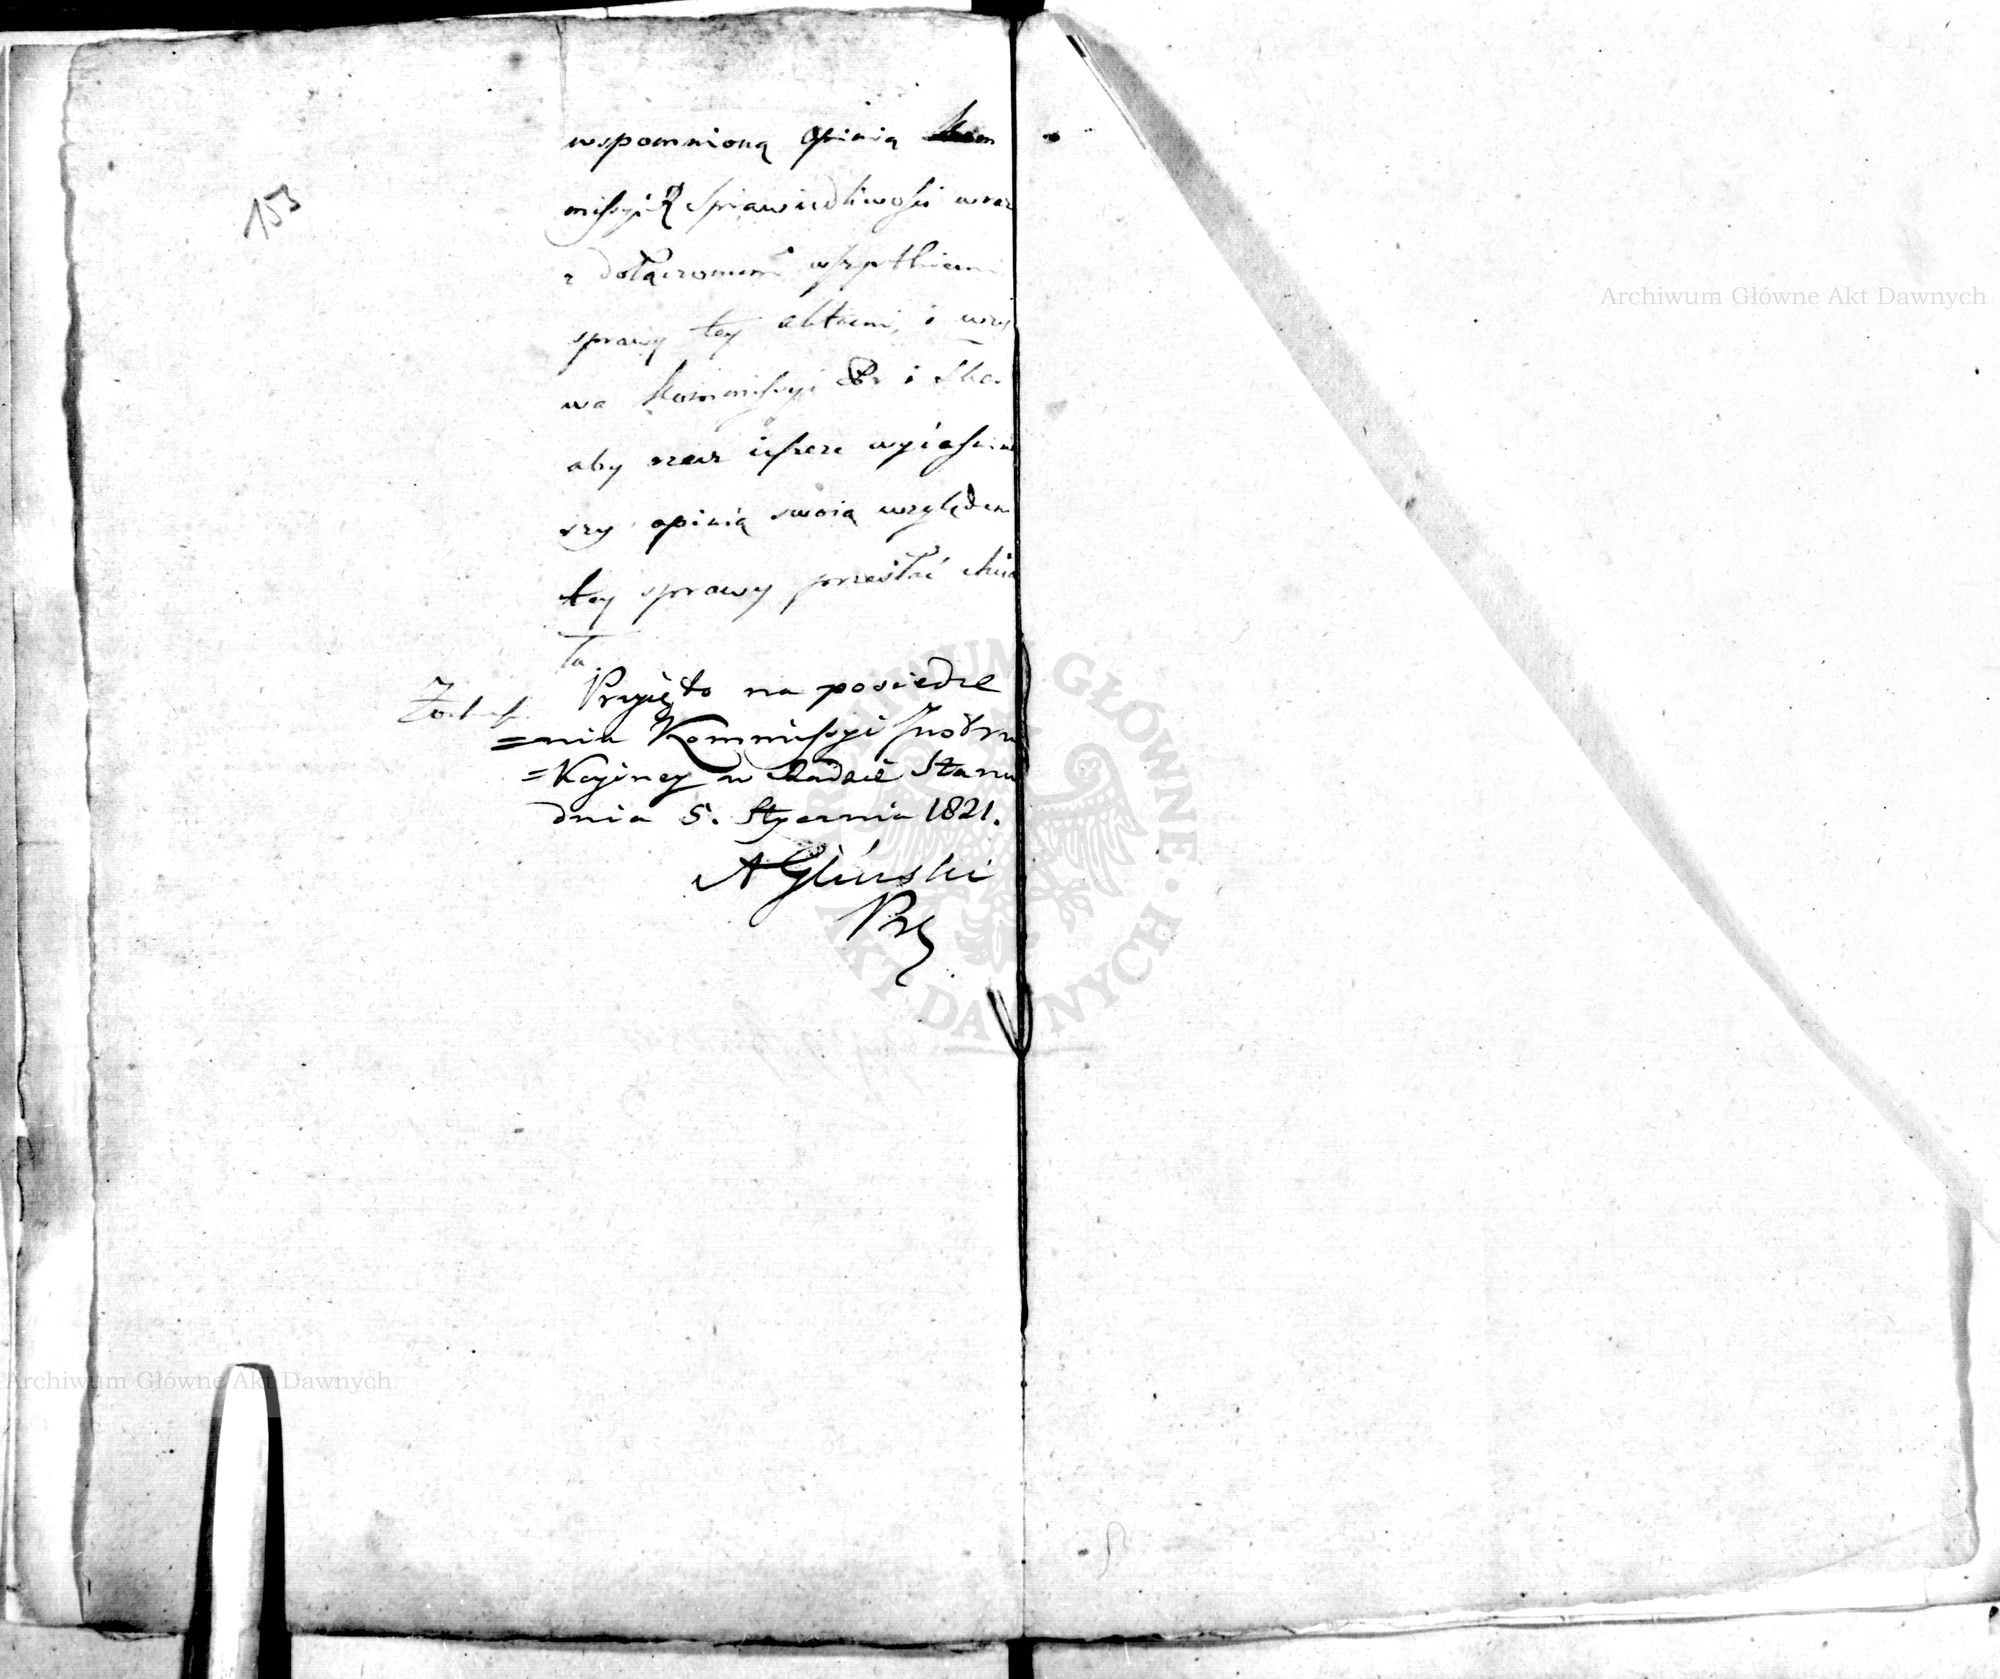 153
wspomnioną opinią Kom
missyi R Sprawiedliwości wraz
z dołączonemi wszystkiemi
sprawy tey aktami, i wzy
wa Kommissyi Pr i Ska.
aby raz ieszcze wyiaśniw
szy opinią swoią względem
tey sprawy przesłać chcia
ła
Przyięto na posiedze
=niu Kommissyi Instru
=kcyiney w Radzie Stanu
dnia 5. Stycznia 1821.
AGliński
Archiwum Główne Akt Dawnych
ARCHIWUM GŁÓWNE AKT DAWNYCH
Archiwum Główne Akt Dawnych